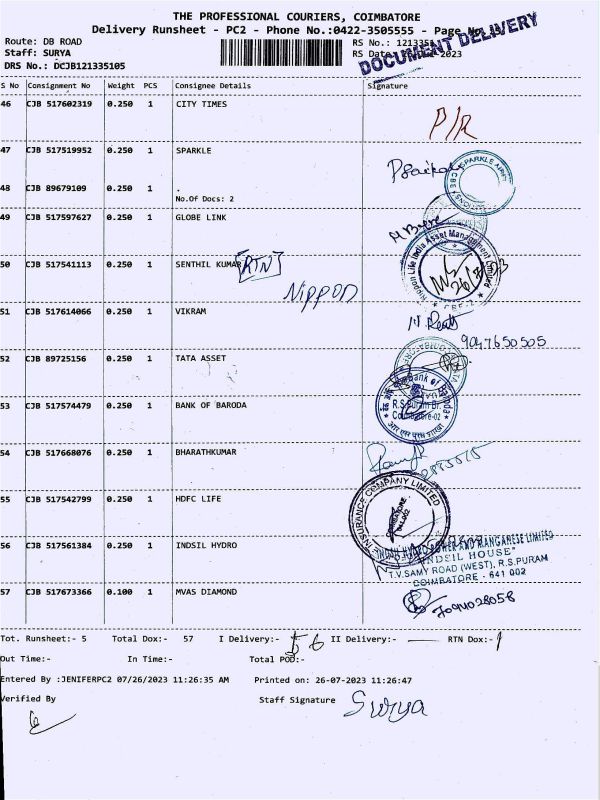 THE PROFESSIONAL COURIERS, COIMBATORE
Delivery Runsheet - PC2 - Phone No.:0422-3505555 - Page No.
DOCUMENT DELIVERY
Route: DB ROAD
RS No.: 1213351
Staff: SURYA
RS Date: 2023
DRS No.: DCJB121335105
S No Consignment No Weight PCS Consignee Details Signature
46 CJB 517602319 0.250 1 CITY TIMES
P/R
47 CJB 517519952 0.250 1 SPARKLE
48 CJB 89679109 0.250 1 .
No.Of Docs: 2
49 CJB 517597627 0.250 1 GLOBE LINK
Nippon Life India Asset Management Limited
50 CJB 517541113 0.250 1 SENTHIL KUMAR RTN
NIPPON
51 CJB 517614066 0.250 1 VIKRAM
9047650505
52 CJB 89725156 0.250 1 TATA ASSET
53 CJB 517574479 0.250 1 BANK OF BARODA
Bank of Baroda
R.S.Puram Br.
Coimbatore-02
54 CJB 517668076 0.250 1 BHARATHKUMAR
55 CJB 517542799 0.250 1 HDFC LIFE
INSURANCE COMPANY LIMITED
COIMBATORE
56 CJB 517561384 0.250 1 INDSIL HYDRO
INDSIL HYDRO POWER AND MANGANESE LIMITED
"INDSIL HOUSE"
T.V.SAMY ROAD (WEST), R.S.PURAM
COIMBATORE - 641 002
57 CJB 517673366 0.100 1 MVAS DIAMOND
Tot. Runsheet:- 5 Total Dox:- 57 I Delivery:- 56 II Delivery:- RTN Dox:- 1
Out Time:- In Time:- Total POD:-
Entered By :JENIFERPC2 07/26/2023 11:26:35 AM Printed on: 26-07-2023 11:26:47
Verified By Staff Signature Surya